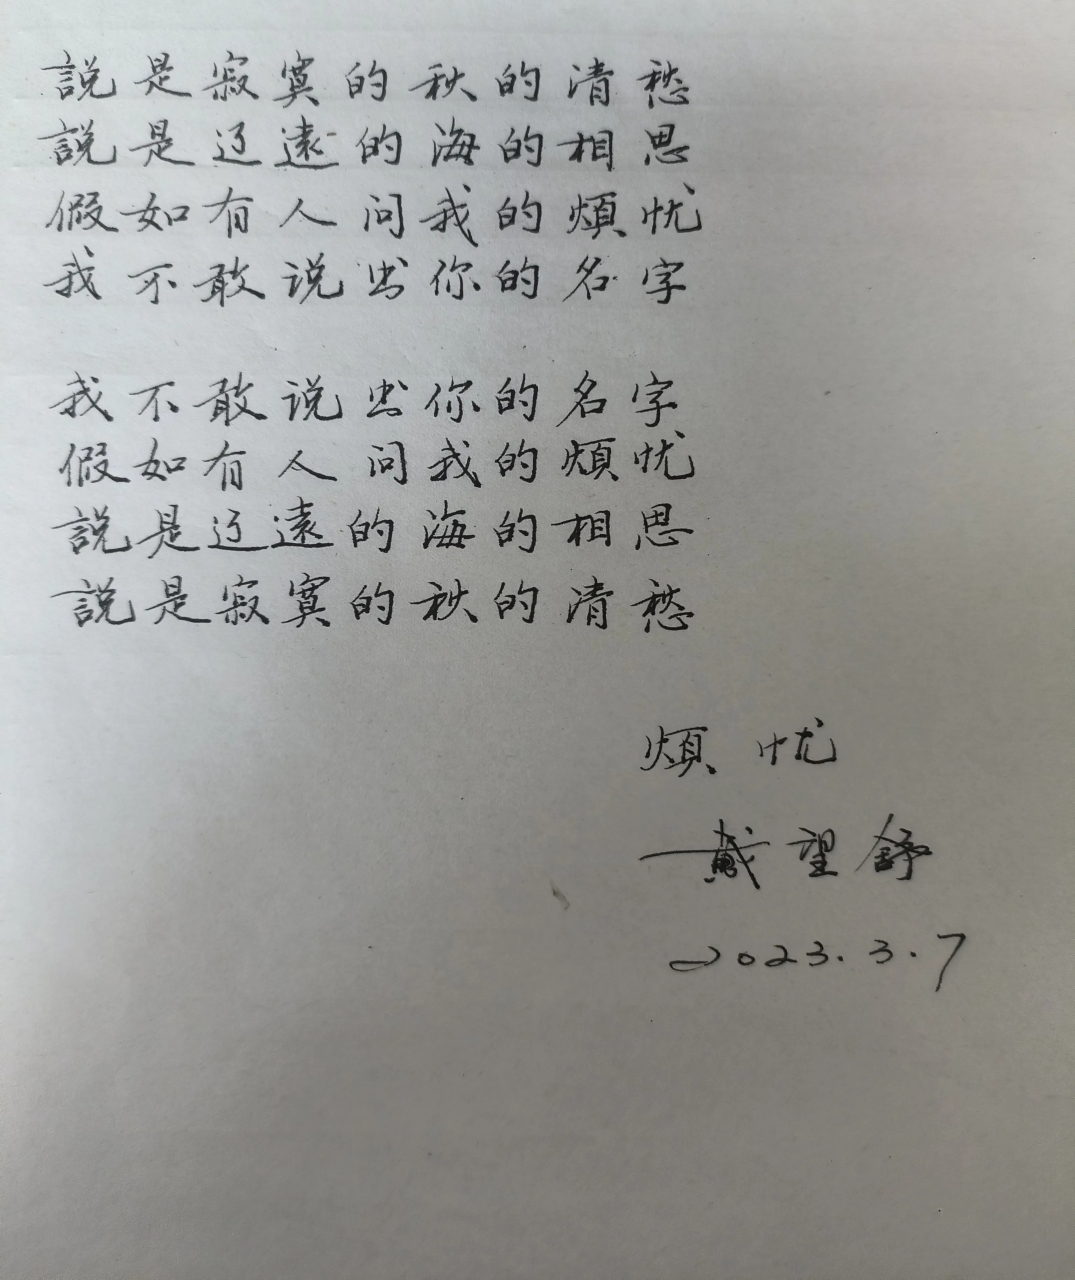 説是寂寞的秋的清愁
説是辽遠的海的相思
假如有人问我的煩忧
我不敢说出你的名字
我不敢说出你的名字
假如有人问我的煩忧
説是辽遠的海的相思
説是寂寞的秋的清愁
煩忧
一戴望舒
2023.3.7